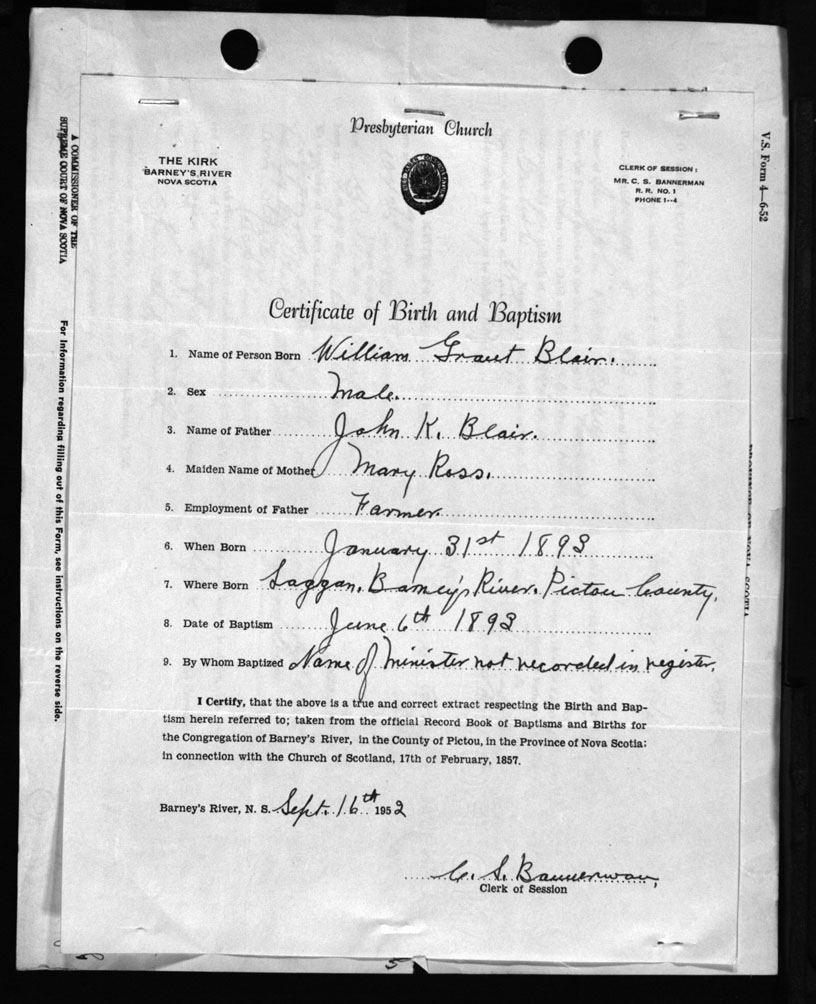 Presbyterian Church
THE KIRK
BARNEY'S RIVER
NOVA SCOTIA
CLERK OF SESSION:
MR. C. S. BANNERMAN
R. R. NO. 1
PHONE 1--4
Certificate of Birth and Baptism
1. Name of Person Born William Grant Blair.
2. Sex Male.
3. Name of Father John K. Blair.
4. Maiden Name of Mother Mary Ross.
5. Employment of Father Farmer.
6. When Born January 31st 1893
7. Where Born Laggan, Barney's River, Pictou County.
8. Date of Baptism June 6th 1893
9. By Whom Baptized Name of Minister not recorded in register.
I Certify, that the above is a true and correct extract respecting the Birth and Bap-
tism herein referred to; taken from the official Record Book of Baptisms and Births for
the Congregation of Barney's River, in the County of Pictou, in the Province of Nova Scotia;
in connection with the Church of Scotland, 17th of February, 1857.
Barney's River, N. S. Sept. 16th 1952
C. S. Bannerman,
Clerk of Session
A COMMISSIONER OF THE
SUPREME COURT OF NOVA SCOTIA
For information regarding filling out of this Form, see instructions on the reverse side.
V.S. Form 4—6-52
5